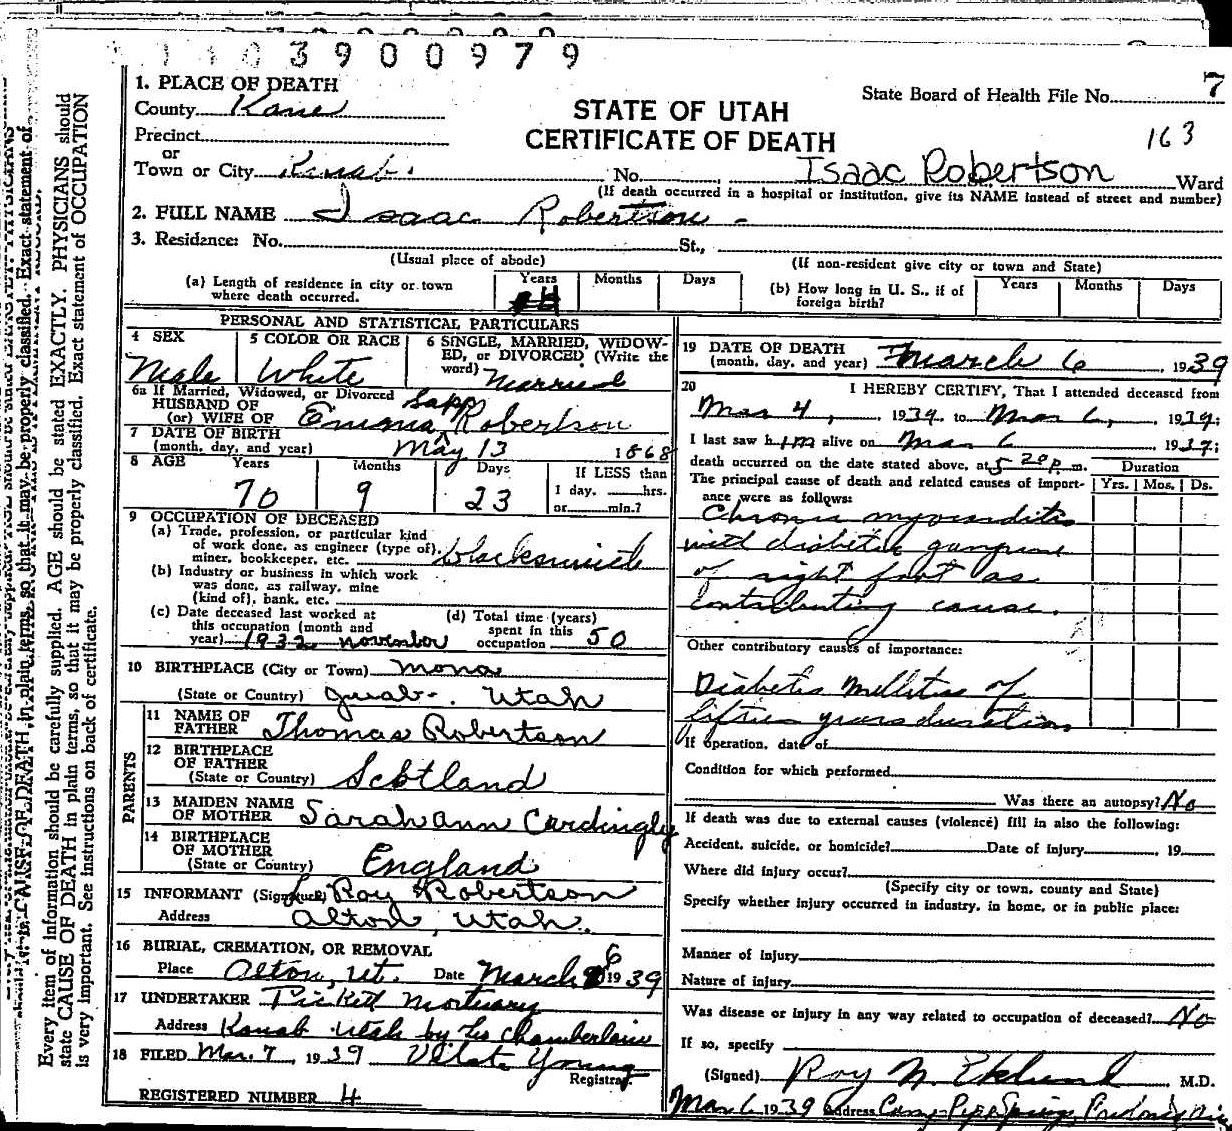 3900979
1. PLACE OF DEATH
County Kane
State Board of Health File No. 7
STATE OF UTAH
Precinct
CERTIFICATE OF DEATH
163
or
Town or City Kanab. No. Isaac Robertson Ward
(If death occurred in a hospital or institution, give its NAME instead of street and number)
2. FULL NAME Isaac Robertson
3. Residence: No. St.,
(Usual place of abode) (If non-resident give city or town and State)
(a) Length of residence in city or town where death occurred. Years Months Days
(b) How long in U. S., if of foreign birth? Years Months Days
PERSONAL AND STATISTICAL PARTICULARS
4 SEX Male
5 COLOR OR RACE White
6 SINGLE, MARRIED, WIDOW-
ED, or DIVORCED (Write the
word) Married
6a If Married, Widowed, or Divorced
HUSBAND OF
(or) WIFE OF Emma Sapp Robertson
7 DATE OF BIRTH
(month, day, and year) May 13 1868
8 AGE Years Months Days If LESS than
70 9 23 1 day, hrs.
or min.?
9 OCCUPATION OF DECEASED
(a) Trade, profession, or particular kind
of work done, as engineer (type of),
miner, bookkeeper, etc. blacksmith
(b) Industry or business in which work
was done, as railway, mine
(kind of), bank, etc.
(c) Date deceased last worked at
this occupation (month and
year) 1932 november
(d) Total time (years)
spent in this
occupation 50
10 BIRTHPLACE (City or Town) Mona
(State or Country) Juab. Utah
PARENTS
11 NAME OF
FATHER Thomas Robertson
12 BIRTHPLACE
OF FATHER
(State or Country) Scotland
13 MAIDEN NAME
OF MOTHER Sarah Ann Cardingly
14 BIRTHPLACE
OF MOTHER
(State or Country) England
15 INFORMANT (Signature) Roy Robertson
Address Alton, Utah.
16 BURIAL, CREMATION, OR REMOVAL
Place Alton, Ut. Date March 6 1939
17 UNDERTAKER Pickett Mortuary
Address Kanab Utah by Chamberlain
18 FILED Mar. 7, 1939 Young
Registrar.
REGISTERED NUMBER 4
19 DATE OF DEATH
(month, day, and year) March 6, 1939
20 I HEREBY CERTIFY, That I attended deceased from
Mar 4, 1939 to Mar 6, 1939.
I last saw him alive on Mar 6 1939.
death occurred on the date stated above, at 5 20 p. m.
The principal cause of death and related causes of import-
ance were as follows:
Duration
Yrs. Mos. Ds.
Chronic myocarditis
with diabetic gangrene
of right foot as
contributing cause.
Other contributory causes of importance:
Diabetes Mellitus of
fifteen years duration
If operation, date of
Condition for which performed
Was there an autopsy? No
If death was due to external causes (violence) fill in also the following:
Accident, suicide, or homicide? Date of injury , 19
Where did injury occur?
(Specify city or town, county and State)
Specify whether injury occurred in industry, in home, or in public place:
Manner of injury
Nature of injury
Was disease or injury in any way related to occupation of deceased? No
If so, specify
(Signed) Roy N. Eklund M.D.
Mar 6 1939 Address Camp Pipe Springs, Fredonia
Every item of information should be carefully supplied. AGE should be stated EXACTLY. PHYSICIANS should
state CAUSE OF DEATH in plain terms, so that it may be properly classified. Exact statement of OCCUPATION
is very important. See instructions on back of certificate.